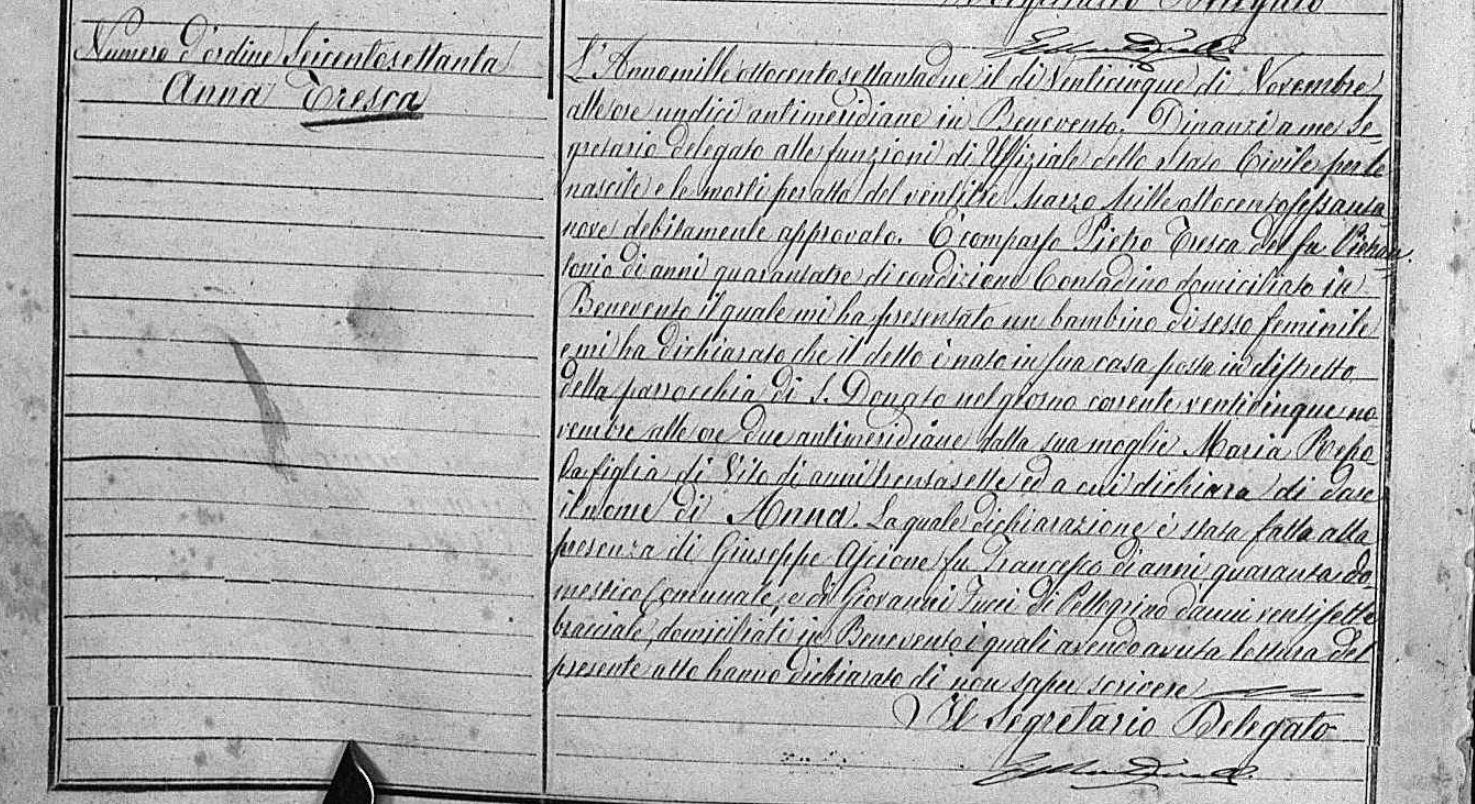 Il Segretario Delegato
Numero d'ordine Seicentosettanta
Anna Tresca
L'Anno mille ottocentosettantadue il di Venticinque di Novembre
alle ore undici antimeridiane in Benevento. Dinanzi a me Se=
gretario delegato alle funzioni di Uffiziale dello Stato Civile per le
nascite e le morti per atto del ventitre Marzo Mille ottocentosessanta
nove debitamente approvato. È comparso Pietro Tresca del fu Pieran
tonio di anni quarantatre di condizione Contadino domiciliato in
Benevento il quale mi ha presentato un bambino di sesso feminile
e mi ha dichiarato che il detto è nato in sua casa posta in distretto
della parrocchia di S. Donato nel giorno corrente venticinque no
vembre alle ore due antimeridiane dalla sua moglie Maria Repo
la figlia di Vito di anni trentasette ed a cui dichiara di dare
il nome di Anna. La quale dichiarazione è stata fatta alla
presenza di Giuseppe Ascione fu Francesco di anni quaranta do
mestico Comunale, e di Giovanni Fucci di Pellegrino d'anni ventisette
bracciale, domiciliati in Benevento i quali avendo avuta lettura del
presente atto hanno dichiarato di non saper scrivere
Il Segretario Delegato